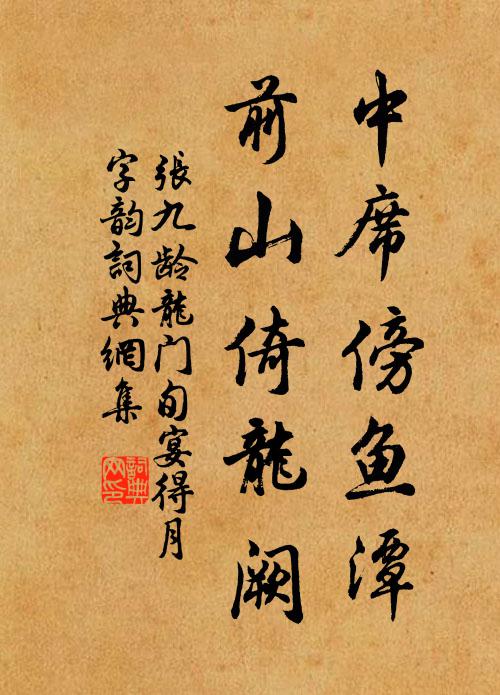 中席傍鱼潭
前山倚龍阙
張九龄龍门旬宴得月
字韵詞典網集
詞典